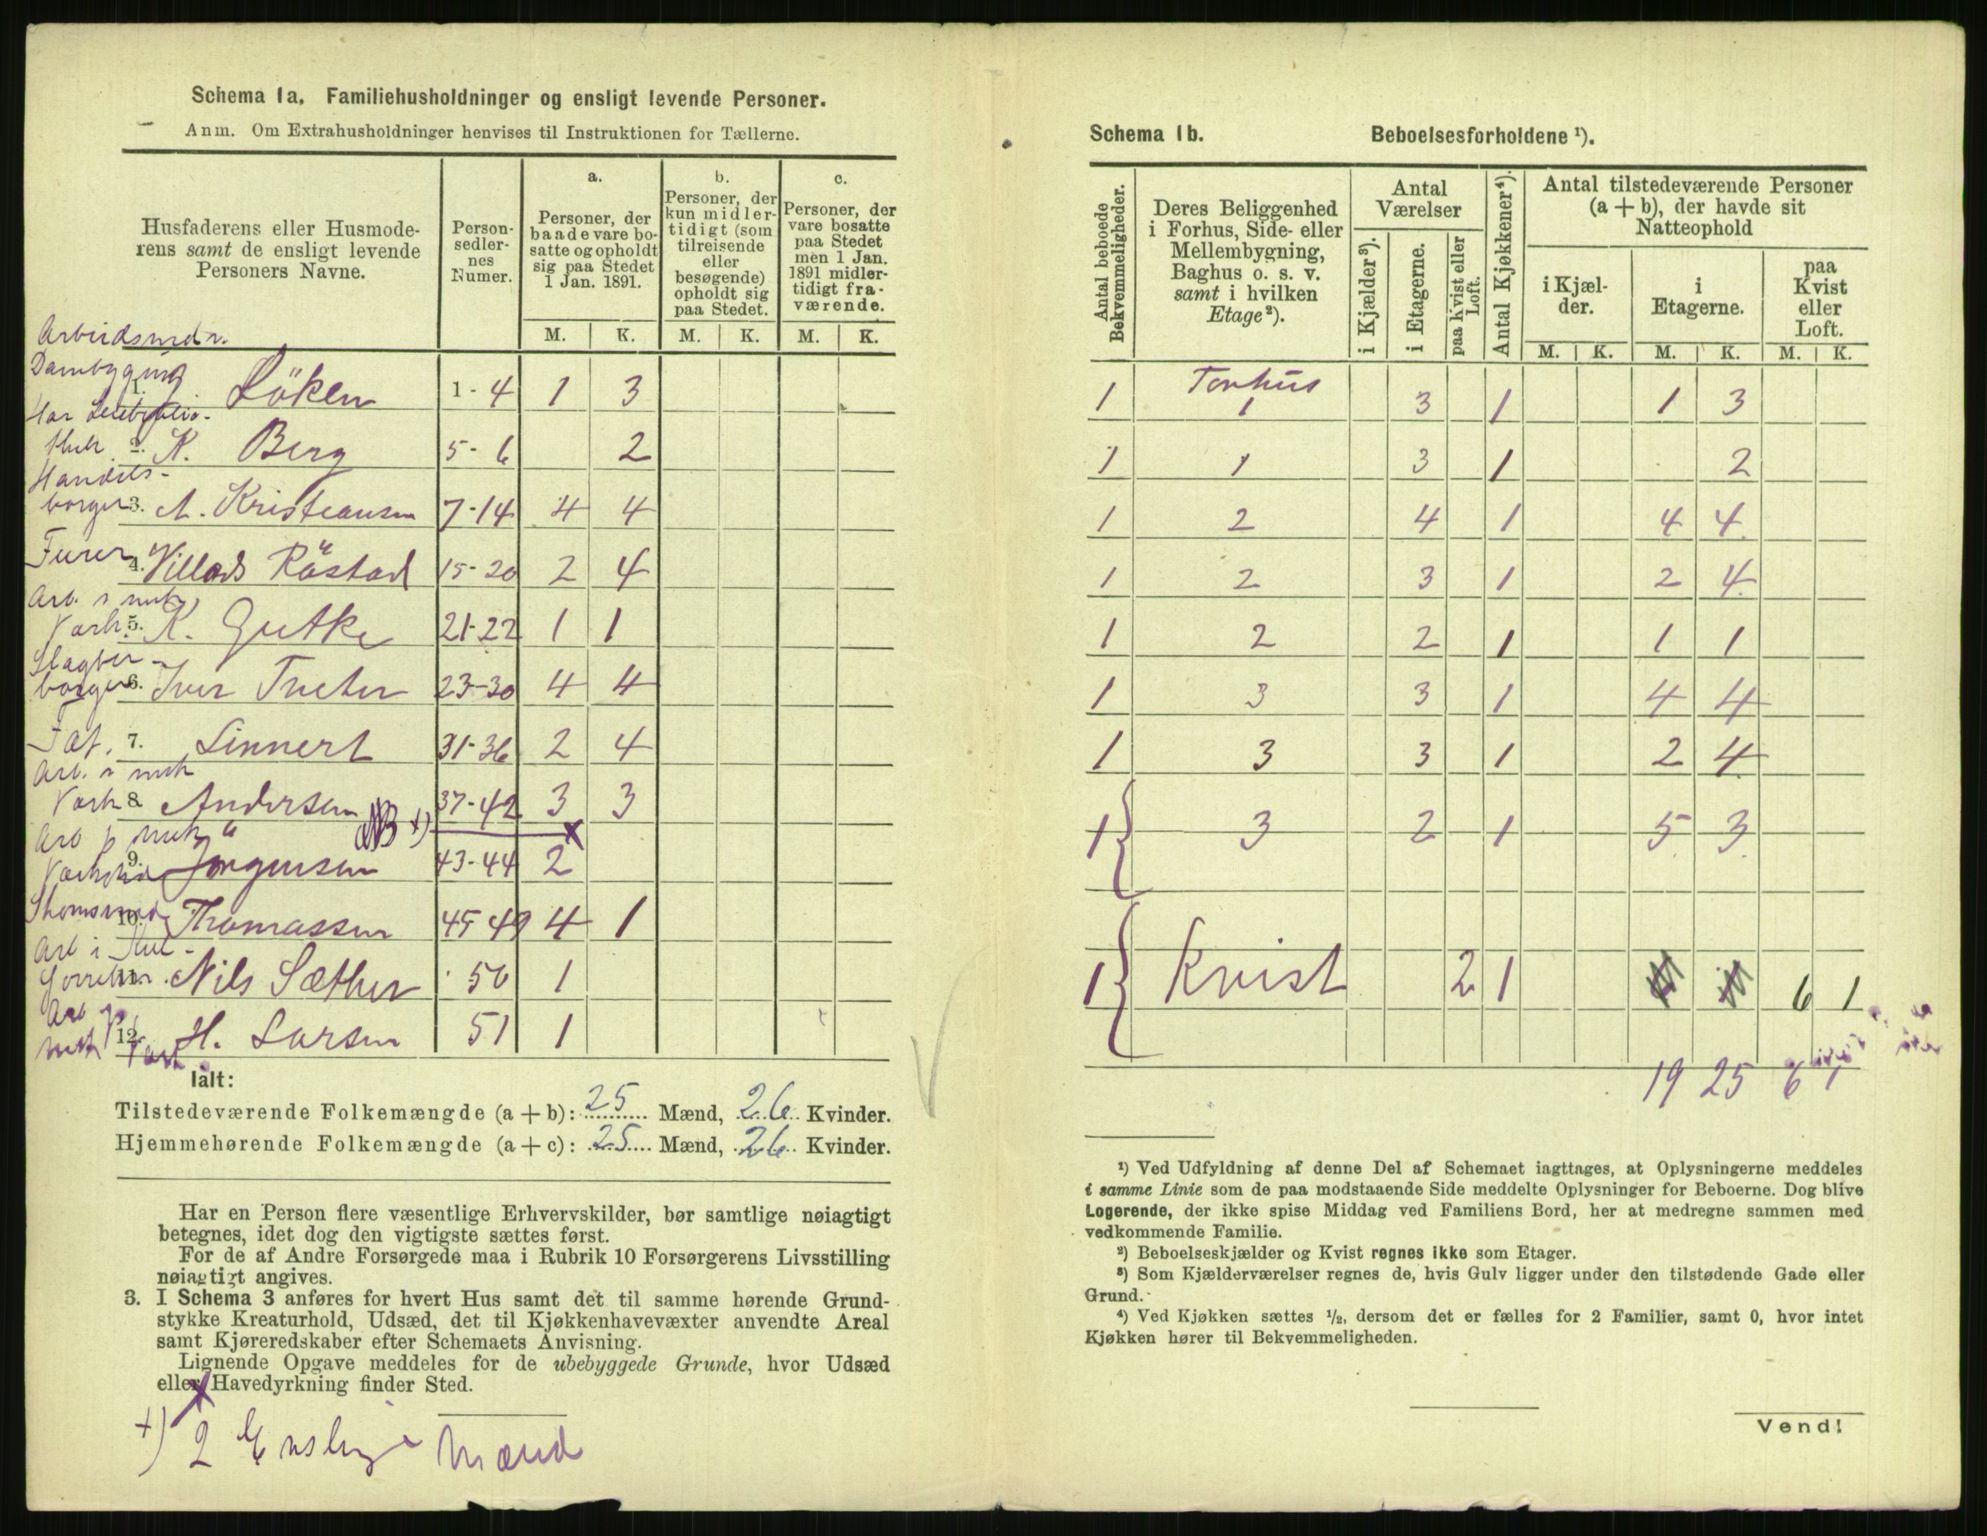 Schema 1a. Familiehusholdninger og ensligt levende Personer.
Anm. Om Extrahusholdninger henvises til Instruktionen for Tællerne.
Husfaderens eller Husmoderens samt de ensligt levende Personers Navne.
Person-sedler-nes Numer.
a. Personer, der baade vare bosatte og opholdt sig paa Stedet 1 Jan. 1891.
b. Personer, der kun midlertidigt (som tilreisende eller besøgende) opholdt sig paa Stedet.
c. Personer, der vare bosatte paa Stedet men 1 Jan. 1891 midlertidigt fraværende.
M. K. M. K. M. K.
1. Löken 1-4 1 3
2. K. Berg 5-6 2
Handels-
borger 3. A. Kristiansen 7-14 4 4
4. Villads Röstad 15-20 2 4
5. K. Gutke 21-22 1 1
borger 6. Iver Treter 23-30 4 4
7. Linnert 31-36 2 4
8. Andersen 37-42 3 3
NB +)
9. Jörgensen 43-44 2
10. Thomassen 45-49 4 1
11. Nils Sæther 50 1
12. H. Larsen 51 1
Ialt:
Tilstedeværende Folkemængde (a + b): 25 Mænd, 26 Kvinder.
Hjemmehørende Folkemængde (a + c): 25 Mænd, 26 Kvinder.
Har en Person flere væsentlige Erhvervskilder, bør samtlige nøiagtigt
betegnes, idet dog den vigtigste sættes først.
For de af Andre Forsørgede maa i Rubrik 10 Forsørgerens Livsstilling
nøiagtigt angives.
3. I Schema 3 anføres for hvert Hus samt det til samme hørende Grund-
stykke Kreaturhold, Udsæd, det til Kjøkkenhavevæxter anvendte Areal
samt Kjøreredskaber efter Schemaets Anvisning.
Lignende Opgave meddeles for de ubebyggede Grunde, hvor Udsæd
eller Havedyrkning finder Sted.
+) 2 Enslige Mænd
Schema 1b. Beboelsesforholdene ¹).
Antal beboede Bekvemmeligheder.
Deres Beliggenhed i Forhus, Side- eller Mellembygning, Baghus o. s. v. samt i hvilken Etage²).
Antal Værelser
i Kjælder³).
i Etagerne.
paa Kvist eller Loft.
Antal Kjøkkener⁴).
Antal tilstedeværende Personer (a + b), der havde sit Natteophold
i Kjæl-der.
i Etagerne.
paa Kvist eller Loft.
M. K. M. K. M. K.
1 Forhus 1 3 1 1 3
1 1 3 1 2
1 2 4 1 4 4
1 2 3 1 2 4
1 2 2 1 1 1
1 3 3 1 4 4
1 3 3 1 2 4
1 3 2 1 5 3
1 Kvist 2 1 6 1
19 25 6 1
¹) Ved Udfyldning af denne Del af Schemaet iagttages, at Oplysningerne meddeles
i samme Linie som de paa modstaaende Side meddelte Oplysninger for Beboerne. Dog blive
Logerende, der ikke spise Middag ved Familiens Bord, her at medregne sammen med
vedkommende Familie.
²) Beboelseskjælder og Kvist regnes ikke som Etager.
³) Som Kjælderværelser regnes de, hvis Gulv ligger under den tilstødende Gade eller
Grund.
⁴) Ved Kjøkken sættes ½, dersom det er fælles for 2 Familier, samt 0, hvor intet
Kjøkken hører til Bekvemmeligheden.
Vend!